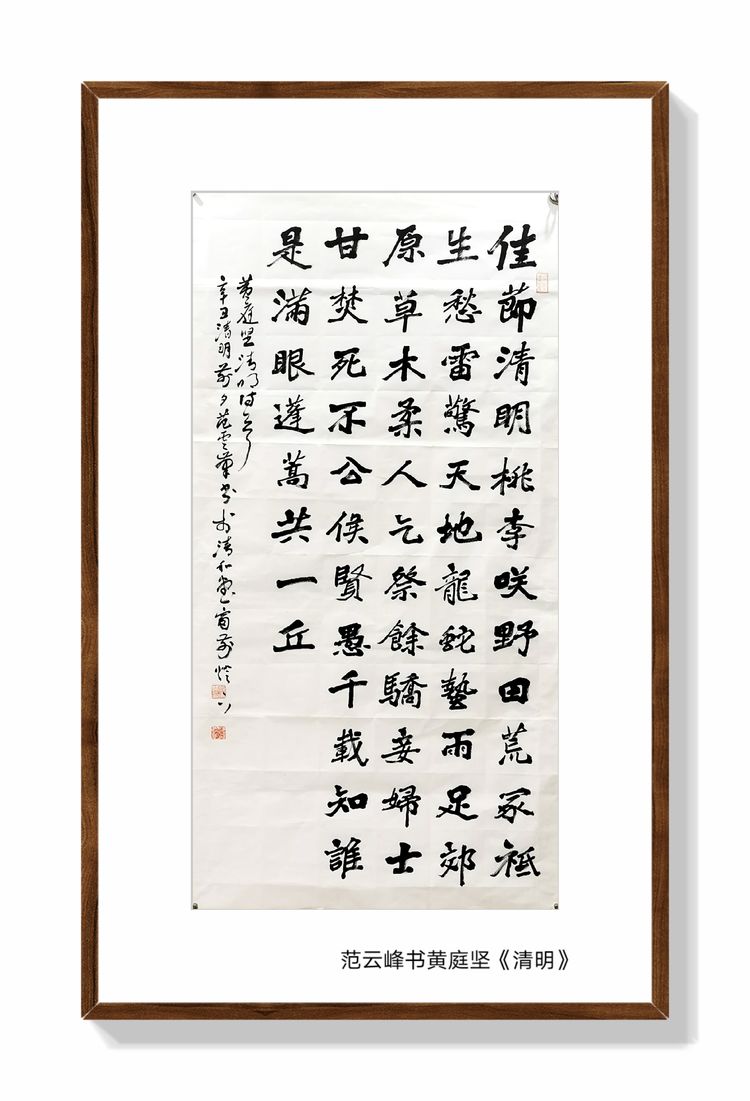 佳節清明桃李咲野田荒冢祗
生愁雷驚天地龍蛇蟄雨足郊
原草木柔人乞祭餘驕妾婦士
甘焚死不公侯賢愚千載知誰
是滿眼蓬蒿共一丘
黄庭坚清明诗之
辛丑清明前夕范雲峰書於清和
范云峰书黄庭坚《清明》